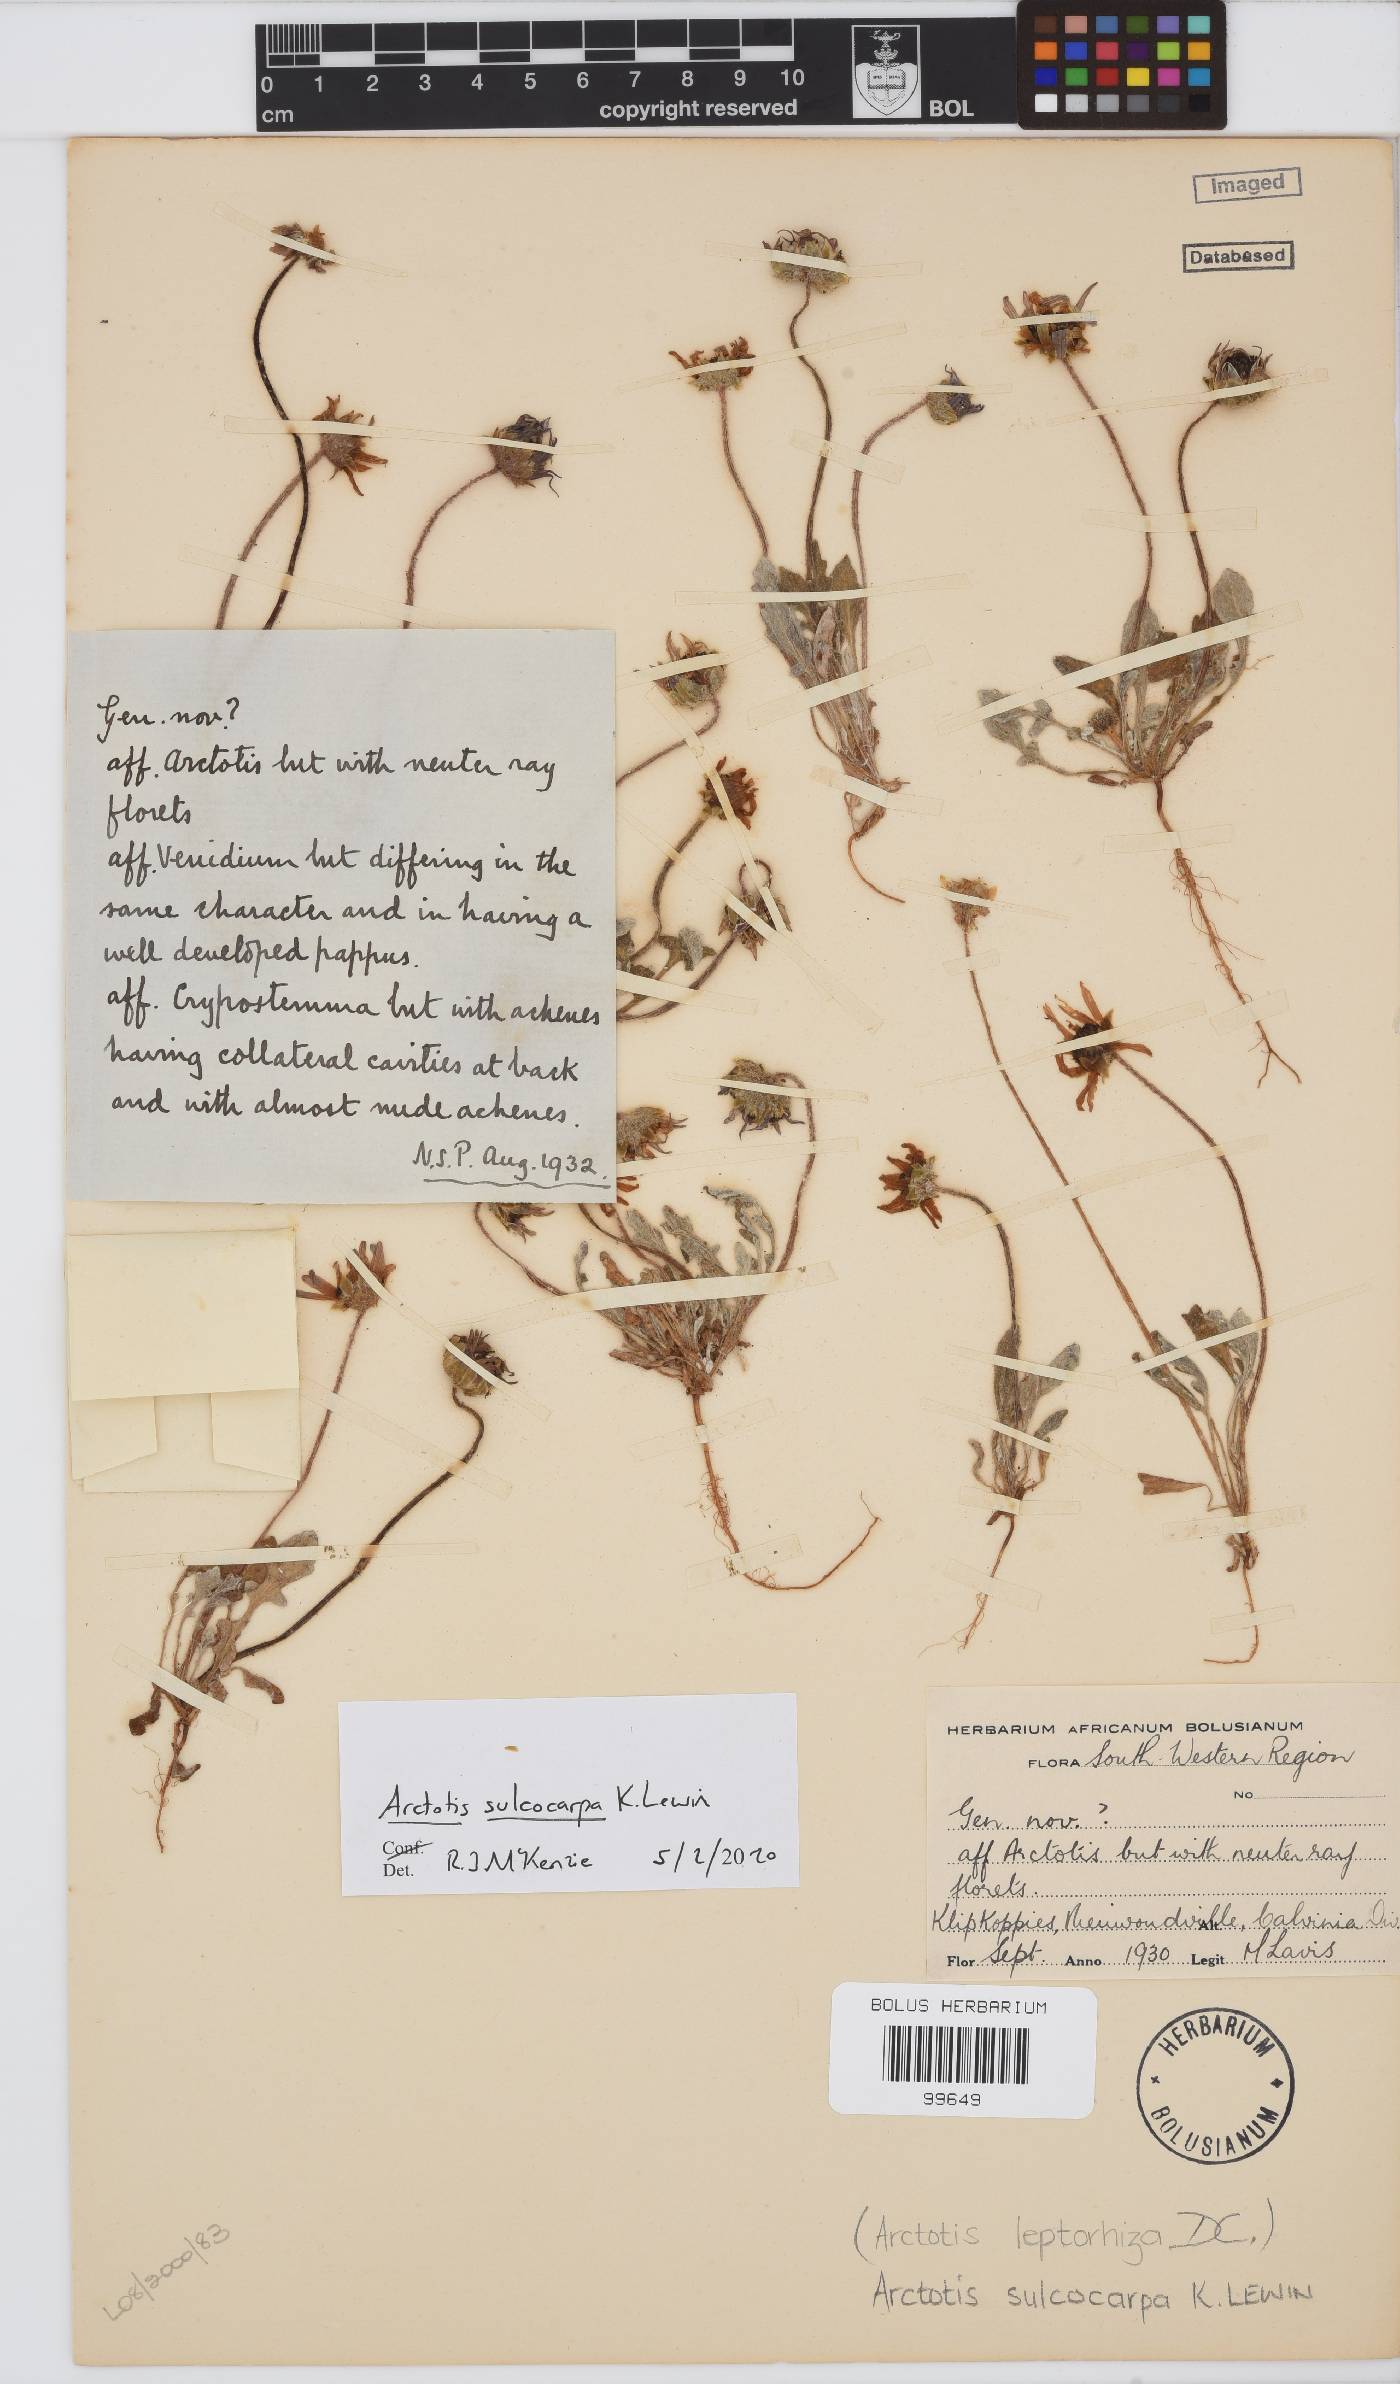 0 1 2 3 4 5 6 7 8 9 10
cm
copyright reserved
BOL
Imaged
Databased
Gen. nov.?
aff. Arctotis but with neuter ray
florets
aff. Venidium but differing in the
same character and in having a
well developed pappus.
aff. Crypostemma but with achenes
having collateral cavities at back
and with almost nude achenes.
N.S.P. Aug. 1932.
Arctotis sulcocarpa K. Lewin
Conf.
Det. R.J McKenzie 5/2/2020
HERBARIUM AFRICANUM BOLUSIANUM
FLORA South-Western Region
No
Gen. nov.?
aff Arctotis but with neuter ray
florets.
Klip Koppies, Alt. Calvinia Div.
Flor Sept. Anno 1930 Legit M Lavis
BOLUS HERBARIUM
99649
HERBARIUM BOLUSIANUM
(Arctotis leptorhiza DC.)
Arctotis sulcocarpa K. LEWIN
L08/2000/83